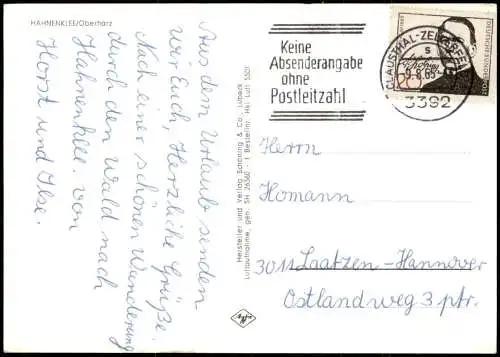 HAHNENKLEE/Oberharz
Aus dem Urlaub senden
wir Euch, Herzliche Grüße.
Nach einer schönen Wanderung
durch den Wald nach
Hahnenklee. von
Horst und Ilse.
Hersteller und Verlag Schöning & Co., Lübeck
Luftaufnahme, gen. SH 26360 - 1 Bestellnr. Hkl Luft 5501
Keine
Absenderangabe
ohne
Postleitzahl
CLAUSTHAL-ZELLERFELD
s
9.8.65
3392
DEUTSCHE BUNDESPOST
Herrn
Homann
3011 Laatzen-Hannover
Ostlandweg 3 ptr.
Agfa